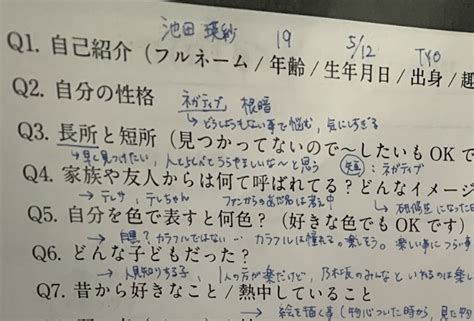 池田 瑛紗 19 5/12 TYO
Q1. 自己紹介（フルネーム / 年齢 / 生年月日 / 出身 / 趣
Q2. 自分の性格 ネガティブ 根暗
→ どうしようもない事で悩む、気にしすぎる
Q3. 長所と短所（見つかってないので〜したいもOKで
→ 早く見つけたい、人と比べてうらやましいな〜と思う 短: ネガティブ
Q4. 家族や友人からは何て呼ばれてる？どんなイメージ
→ テレサ、テレちゃん ファンからのあだ名は考え中 → 研修生になった日
Q5. 自分を色で表すと何色？（好きな色でもOKです）
→ 白黒？カラフルではない… カラフルは憧れる。楽しそう。楽しい事につら
Q6. どんな子どもだった？
→ 人見知りする子、1人の方が楽だけど、乃木坂のみんなといれるのは楽し
Q7. 昔から好きなこと / 熱中していること
→ 絵を描く事（物心ついた時から、見た物